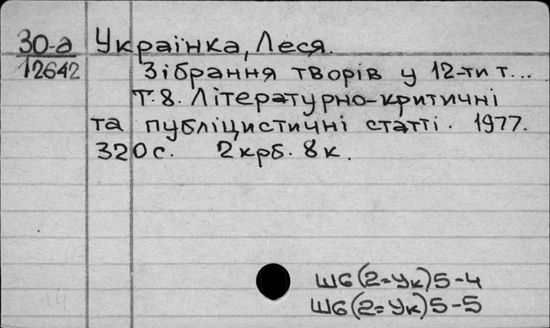 30-а Українка, Леся.
12642 Зібрання творів у 12-ти т...
Т.8. Літературно-критичні
та публіцистичні статті. 1977.
320с. 2крб. 8к.
Ш6(2=Ук)5-4
Ш6(2=Ук)5-5